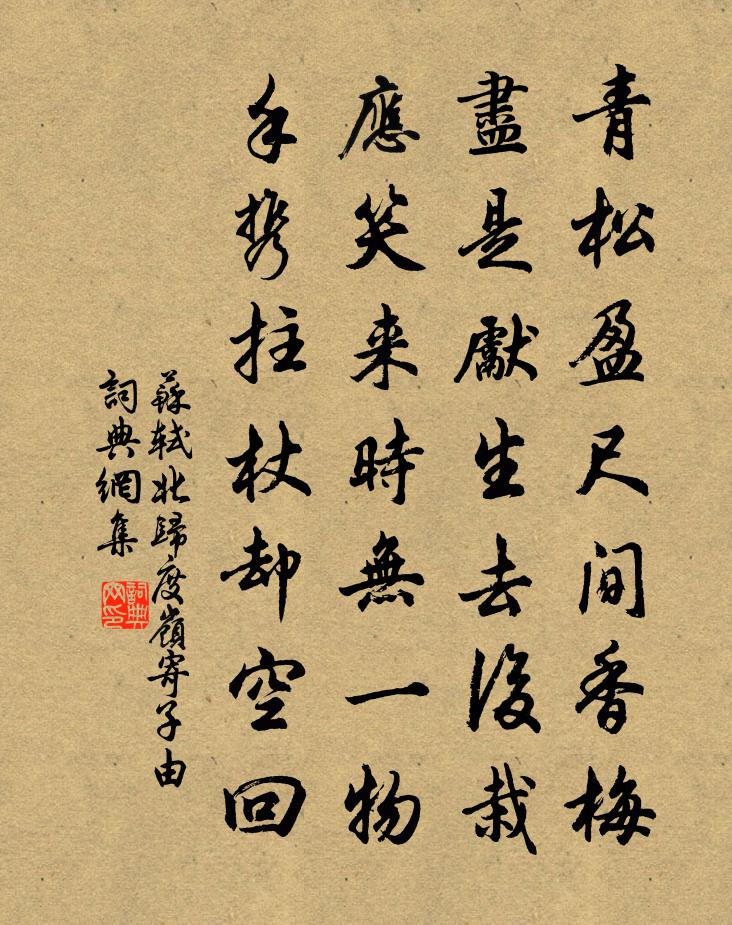 青松盈尺间香梅
盡是獻生去後栽
應笑来時無一物
手携拄杖却空回
蘇軾北歸度嶺寄子由
詞典網集
詞典网印